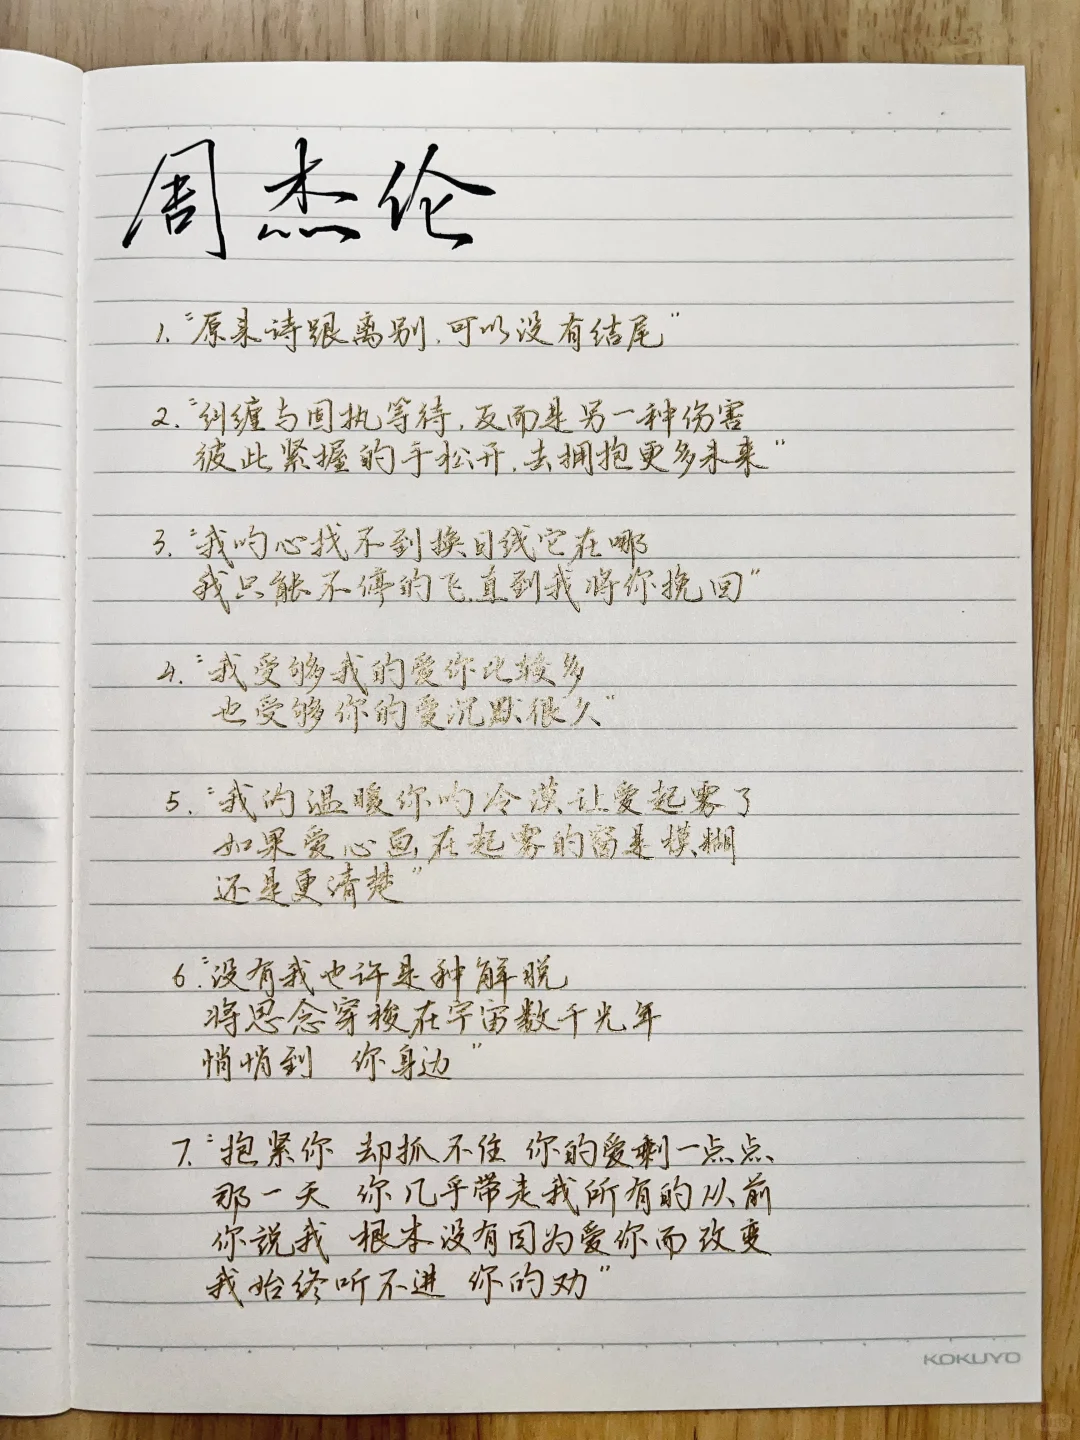 周杰伦
1. “原来诗跟离别,可以没有结尾”
2. “纠缠与固执等待,反而是另一种伤害
彼此紧握的手松开,去拥抱更多未来”
3. “我的心找不到换日线它在哪
我只能不停的飞,直到我将你挽回”
4. “我受够我的爱你比较多
也受够你的爱沉默很久”
5. “我的温暖你的冷漠让爱起雾了
如果爱心画在起雾的窗是模糊
还是更清楚”
6. “没有我也许是种解脱
将思念穿梭在宇宙数千光年
悄悄到 你身边”
7. “抱紧你 却抓不住 你的爱剩一点点
那一天 你几乎带走我所有的从前
你说我 根本没有因为爱你而改变
我始终听不进 你的劝”
KOKUYO